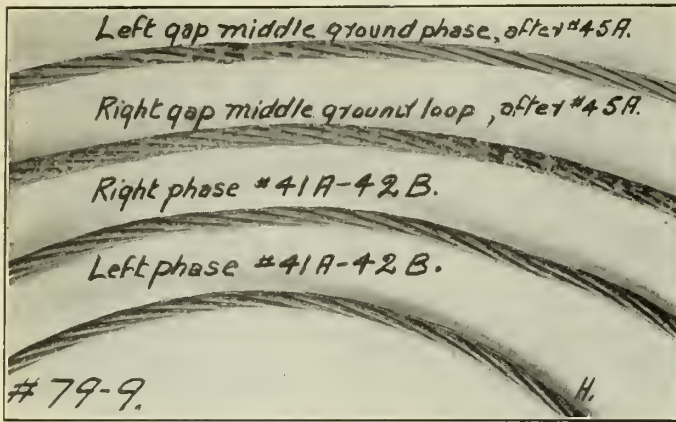 Left gap middle ground phase, after #45A.
Right gap middle ground loop, after #45A.
Right phase #41A-42B.
Left phase #41A-42B.
#79-9.
H.